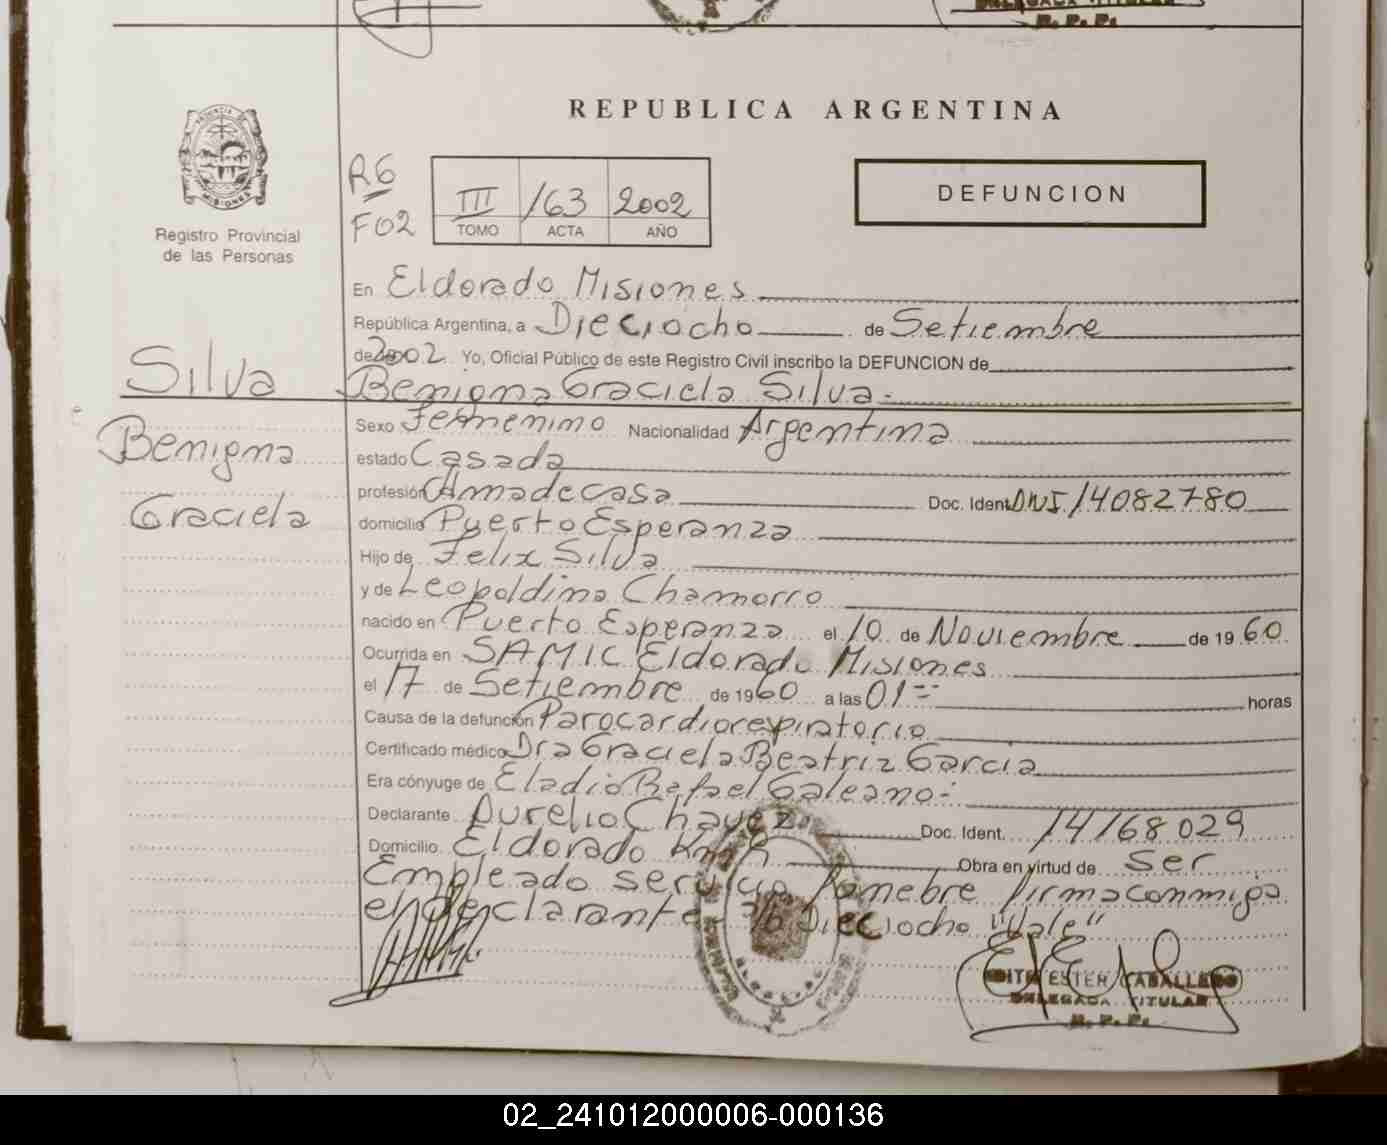 DELEGADA TITULAR
R. P. P.
REPUBLICA ARGENTINA
R6
F02
III /163 2002
TOMO ACTA AÑO
DEFUNCION
Registro Provincial
de las Personas
En Eldorado Misiones
República Argentina, a Dieciocho de Setiembre
de 2002 Yo, Oficial Público de este Registro Civil inscribo la DEFUNCION de
Silva
Benigna Graciela Silva.-
Benigna
Graciela
Sexo Femenino Nacionalidad Argentina
estado Casada
profesión Ama de casa Doc. Ident. DNI 14082780
domicilio Puerto Esperanza
Hijo de Felix Silva
y de Leopoldina Chamorro
nacido en Puerto Esperanza el 10 de Noviembre de 19 60
Ocurrida en SAMIC Eldorado Misiones
el 17 de Setiembre de 19 60 a las 01 horas
Causa de la defunción Parocardiorespiratorio
Certificado médico Dra Graciela Beatriz Garcia
Era cónyuge de Eladio Rafael Galeano-
Declarante Aurelio Chavez Doc. Ident. 14168029
Domicilio Eldorado Km Obra en virtud de ser
Empleado servicio funebre firma conmigo
el declarante Dieciocho "Vale"
EDITH ESTER CABALLERO
DELEGADA TITULAR
R. P. P.
02_241012000006-000136